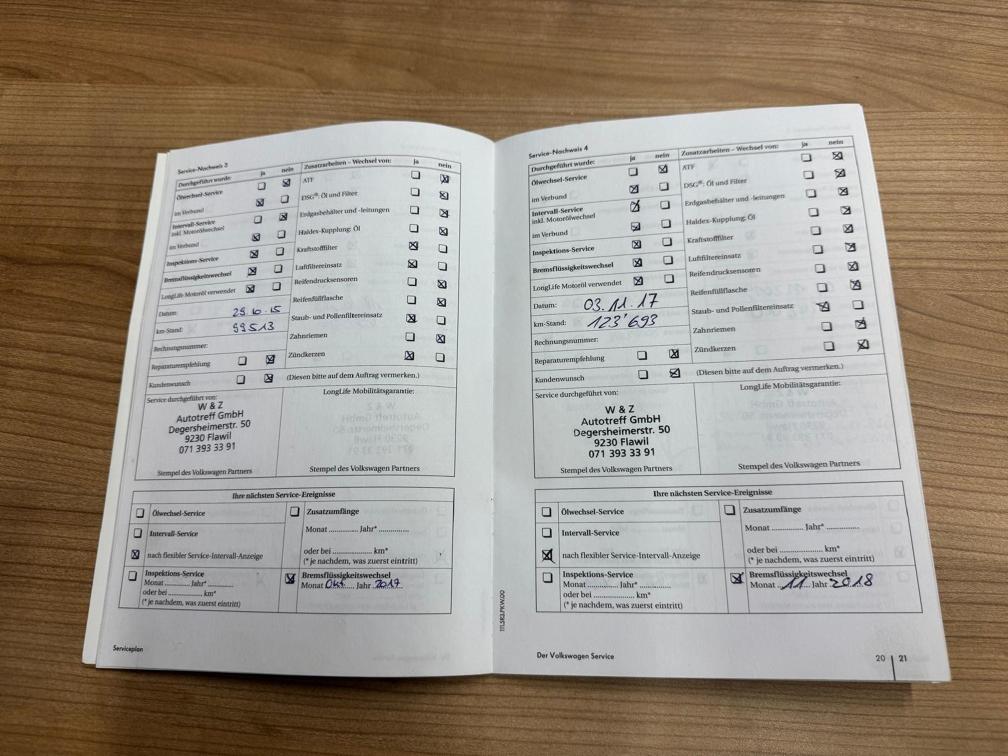 Service-Nachweis 3
Durchgeführt wurde: ja nein
Ölwechsel-Service
im Verbund
Intervall-Service
inkl. Motorölwechsel
im Verbund
Inspektions-Service
Bremsflüssigkeitswechsel
LongLife Motoröl verwendet
Datum: 29.10.15
km-Stand: 99513
Rechnungsnummer:
Reparaturempfehlung
Kundenwunsch
Zusatzarbeiten – Wechsel von: ja nein
ATF
DSG®: Öl und Filter
Erdgasbehälter und -leitungen
Haldex-Kupplung: Öl
Kraftstofffilter
Luftfiltereinsatz
Reifendrucksensoren
Reifenfüllflasche
Staub- und Pollenfiltereinsatz
Zahnriemen
Zündkerzen
(Diesen bitte auf dem Auftrag vermerken.)
Service durchgeführt von:
W & Z
Autotreff GmbH
Degersheimerstr. 50
9230 Flawil
071 393 33 91
Stempel des Volkswagen Partners
LongLife Mobilitätsgarantie:
Stempel des Volkswagen Partners
Ihre nächsten Service-Ereignisse
Ölwechsel-Service
Intervall-Service
nach flexibler Service-Intervall-Anzeige
Inspektions-Service
Monat .......... Jahr* ...............
oder bei ..................... km*
(* je nachdem, was zuerst eintritt)
Zusatzumfänge
Monat ............ Jahr* ...............
oder bei ................ km*
(* je nachdem, was zuerst eintritt)
Bremsflüssigkeitswechsel
Monat Okt. Jahr 2017
Serviceplan
Service-Nachweis 4
Durchgeführt wurde: ja nein
Ölwechsel-Service
im Verbund
Intervall-Service
inkl. Motorölwechsel
im Verbund
Inspektions-Service
Bremsflüssigkeitswechsel
LongLife Motoröl verwendet
Datum: 03.11.17
km-Stand: 123'693
Rechnungsnummer:
Reparaturempfehlung
Kundenwunsch
Zusatzarbeiten – Wechsel von: ja nein
ATF
DSG®: Öl und Filter
Erdgasbehälter und -leitungen
Haldex-Kupplung: Öl
Kraftstofffilter
Luftfiltereinsatz
Reifendrucksensoren
Reifenfüllflasche
Staub- und Pollenfiltereinsatz
Zahnriemen
Zündkerzen
(Diesen bitte auf dem Auftrag vermerken.)
Service durchgeführt von:
W & Z
Autotreff GmbH
Degersheimerstr. 50
9230 Flawil
071 393 33 91
Stempel des Volkswagen Partners
LongLife Mobilitätsgarantie:
Stempel des Volkswagen Partners
Ihre nächsten Service-Ereignisse
Ölwechsel-Service
Intervall-Service
nach flexibler Service-Intervall-Anzeige
Inspektions-Service
Monat .......... Jahr* ...............
oder bei ..................... km*
(* je nachdem, was zuerst eintritt)
Zusatzumfänge
Monat ............ Jahr* ...............
oder bei ................ km*
(* je nachdem, was zuerst eintritt)
Bremsflüssigkeitswechsel
Monat 11 Jahr 2018
Der Volkswagen Service
20 | 21